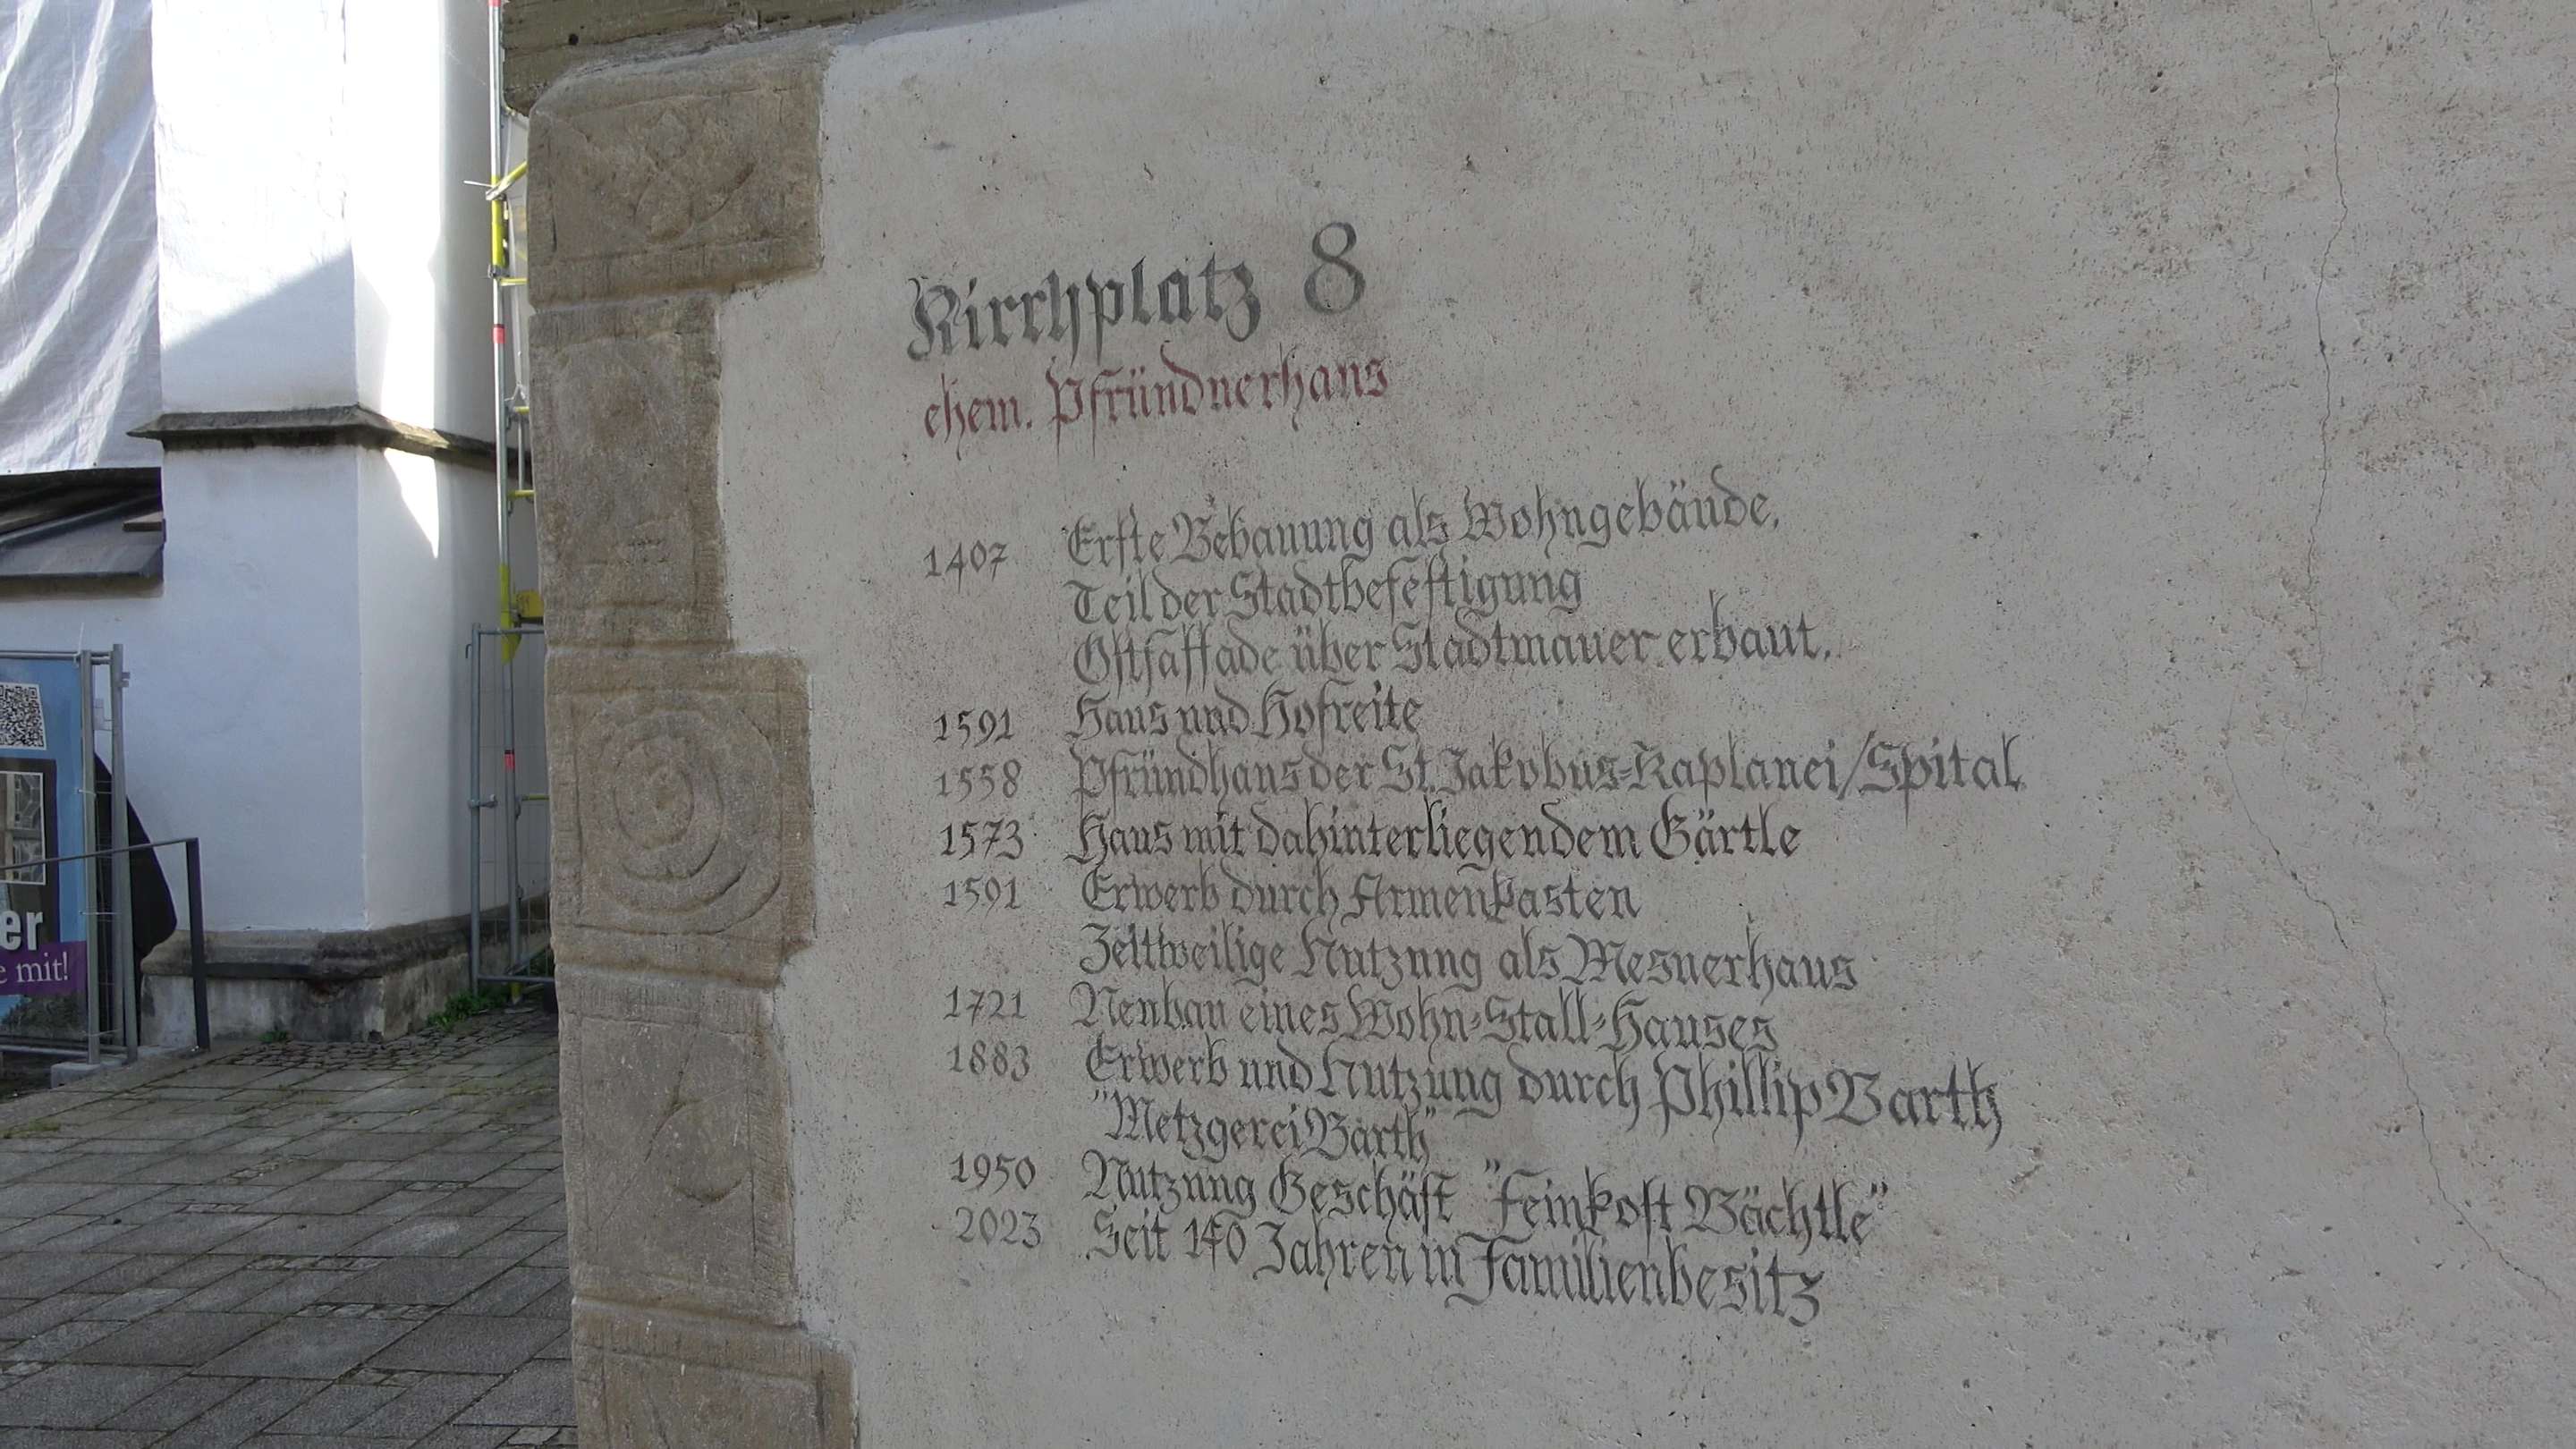 Kirchplatz 8
ehem. Pfründnerhaus
1407 Erste Bebauung als Wohngebäude,
Teil der Stadtbefestigung
Ostfassade über Stadtmauer erbaut.
1591 Haus und Hofreite
1558 Pfründhaus der St. Jakobus-Kaplanei/Spital
1573 Haus mit dahinterliegendem Gärtle
1591 Erwerb durch Armenkasten
Zeitweilige Nutzung als Mesnerhaus
1721 Neubau eines Wohn-Stall-Hauses
1883 Erwerb und Nutzung durch Phillip Barth
"Metzgerei Barth"
1950 Nutzung Geschäft "Feinkost Bächtle"
2023 Seit 140 Jahren in Familienbesitz
er
e mit!